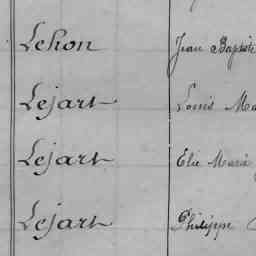 Lehon Jean Baptiste
Lejart Louis Ma
Lejart Elie Marie
Lejart Philippe